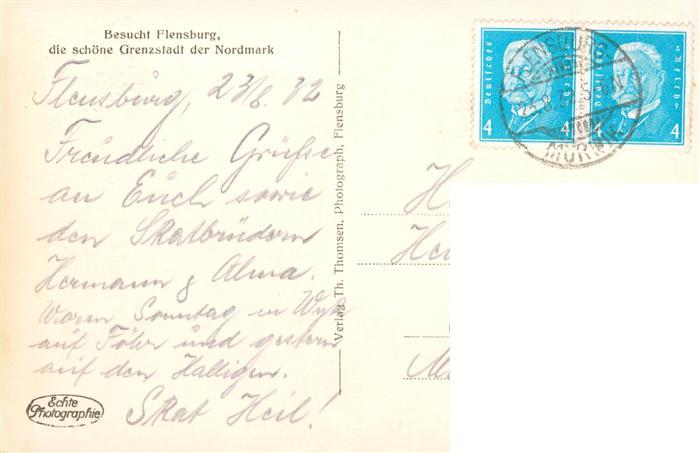 Besucht Flensburg,
die schöne Grenzstadt der Nordmark
Flensburg, 23/8. 32
Freundliche Grüße
an Euch sowie
den Skatbrüdern
Hermann & Alma.
Waren Sonntag in Wyk
auf Föhr und gestern
auf den Halligen.
Skat Heil!
Echte
Photographie
Verlag Th. Thomsen, Photograph, Flensburg
Deutsches Reich
4 4
Deutsches Reich
4 4
FLENSBURG